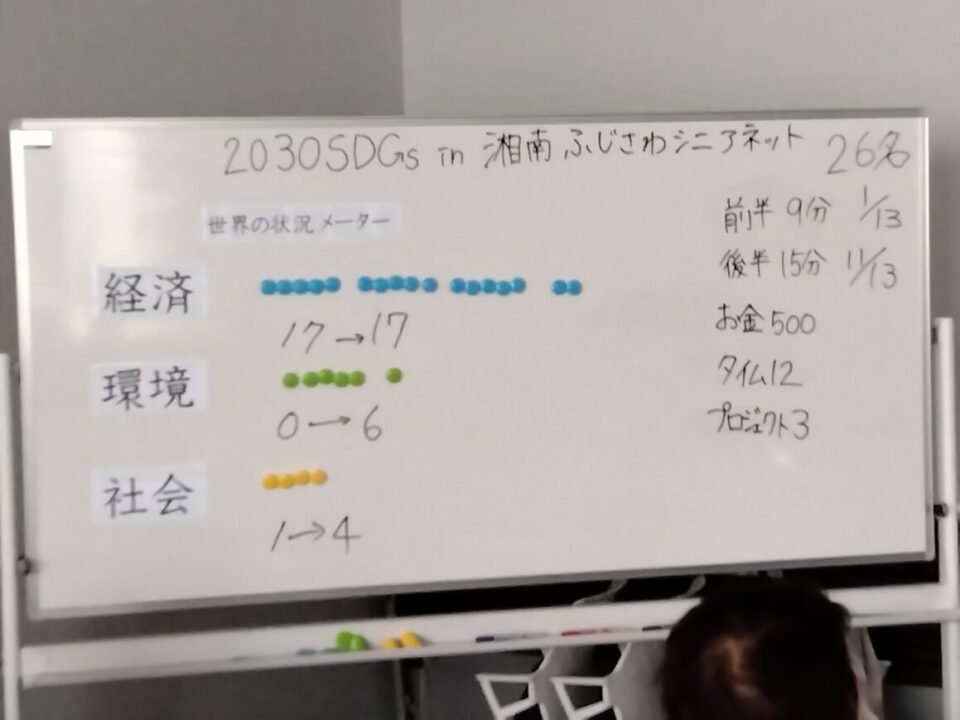 2030SDGs in 湘南ふじさわシニアネット 26名
世界の状況メーター
経済
17→17
環境
0→6
社会
1→4
前半 9分 1/13
後半 15分 11/13
お金500
タイム12
プロジェクト3